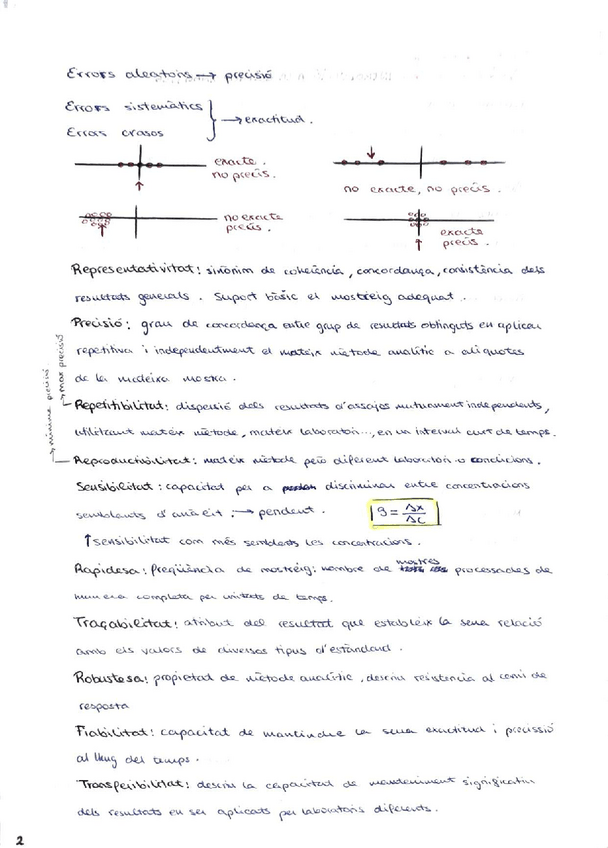 Errors aleatoris → precisió
Errors sistemàtics
Erras crasos
→ exactitud.
exacte.
no precís.
no exacte, no precís.
no exacte
precís.
exacte
precís.
Representativitat: sinònim de coherència, concordança, consistència dels
resultats generals. Suport bàsic el mostreig adequat.
Precisió: grau de concordança entre grup de resultats obtinguts en aplicar
repetitiva i independentment el mateix mètode analític a alíquotes
de la mateixa mostra.
→ mínima precisió
→ max precisió
Repetitibilitat: dispersió dels resultats d'assajos mutuament independents,
utilitzant mateix mètode, mateix laboratori..., en un interval curt de temps.
Reproductibilitat: mateix mètode però diferent laboratori o condicions.
Sensibilitat: capacitat per a discriminar entre concentracions
semblants d'anàlit. → pendent.
S = Δx / Δc
↑ sensibilitat com més semblants les concentracions.
Rapidesa: freqüència de mostreig: nombre de mostres processades de
manera completa per unitats de temps.
Traçabilitat: atribut del resultat que estableix la seua relació
amb els valors de diversos tipus d'estàndard.
Robustesa: propietat de mètode analític, descriu resistencia al canvi de
resposta
Fiabilitat: capacitat de mantindre la seua exactitud i precissió
al llarg del temps.
Transferibilitat: descriu la capacitat de manteniment significatiu
dels resultats en ser aplicats per laboratoris diferents.
2